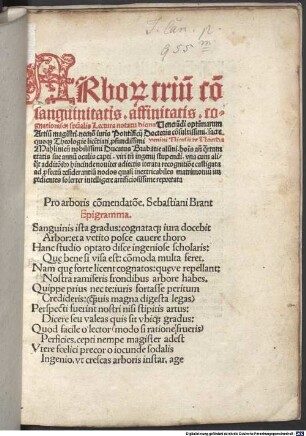 J. Can. p.
955 m
ARbor triū cō
sanguinitatis. affinitatis. co-
gnationisqʒ
Artiū magistri. necnō iuris Pontificij Doctoris cōsultissimi. sacre
quoqʒ Theologie licētiati
Mechlinien nobilissimi Ducatus Brabātie
Pro arboris cōmendatōe. Sebastiani Brant
Epigramma.
Sanguinis ista gradus: cognataqʒ iura docebit
Arbor: et a vetito posce cauere thoro
Hanc studio optato disce ingeniose scholaris:
Que bene si visa est: cōmoda multa feret.
Nam que forte licent cognatos: queqʒ repellant:
Nostra ramiferis frondibus arbore habes.
Quippe prius nec teriuris fortasse peritum
Credideris: (qͥuis magna digesta legas)
Perspecti fuerint nostri nisi stipitis artus:
Dicere seu valeas quis sit vbiqʒ gradus:
Quod facile o lector (modo si ratione frueris)
Perficies. cepti nempe magister adest
Vtere foelici precor o iocunde sodalis
Ingenio. vt crescas arboris instar, age